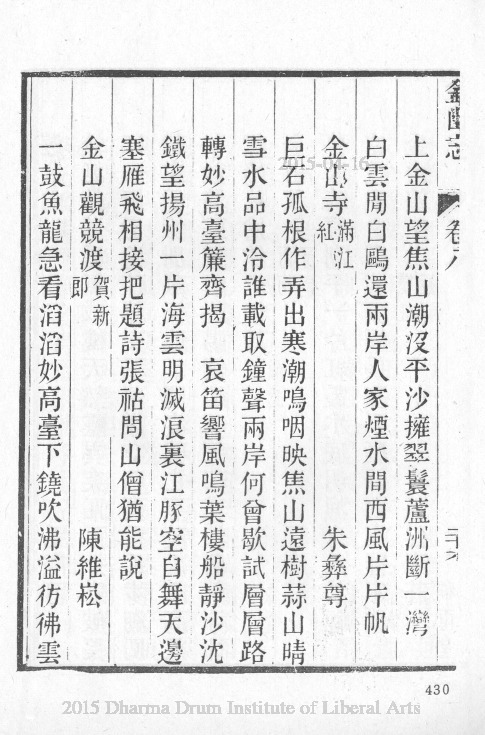 金山志 卷八
上金山望焦山潮沒平沙擁翠鬟蘆洲斷一灣
白雲閒白鷗還兩岸人家煙水間西風片片帆
金山寺 滿江紅 朱彝尊
巨石孤根作弄出寒潮嗚咽映焦山遠樹蒜山晴
雪水品中泠誰載取鐘聲兩岸何曾歇試層層路
轉妙高臺簾齊揭 哀笛響風鳴葉樓船靜沙沈
鐵望揚州一片海雲明滅浪裏江豚空自舞天邊
塞雁飛相接把題詩張祜問山僧猶能說
金山觀競渡 賀新郎 陳維崧
一鼓魚龍急看滔滔妙高臺下鐃吹沸溢彷彿雲
430
2015-04-16
2015 Dharma Drum Institute of Liberal Arts